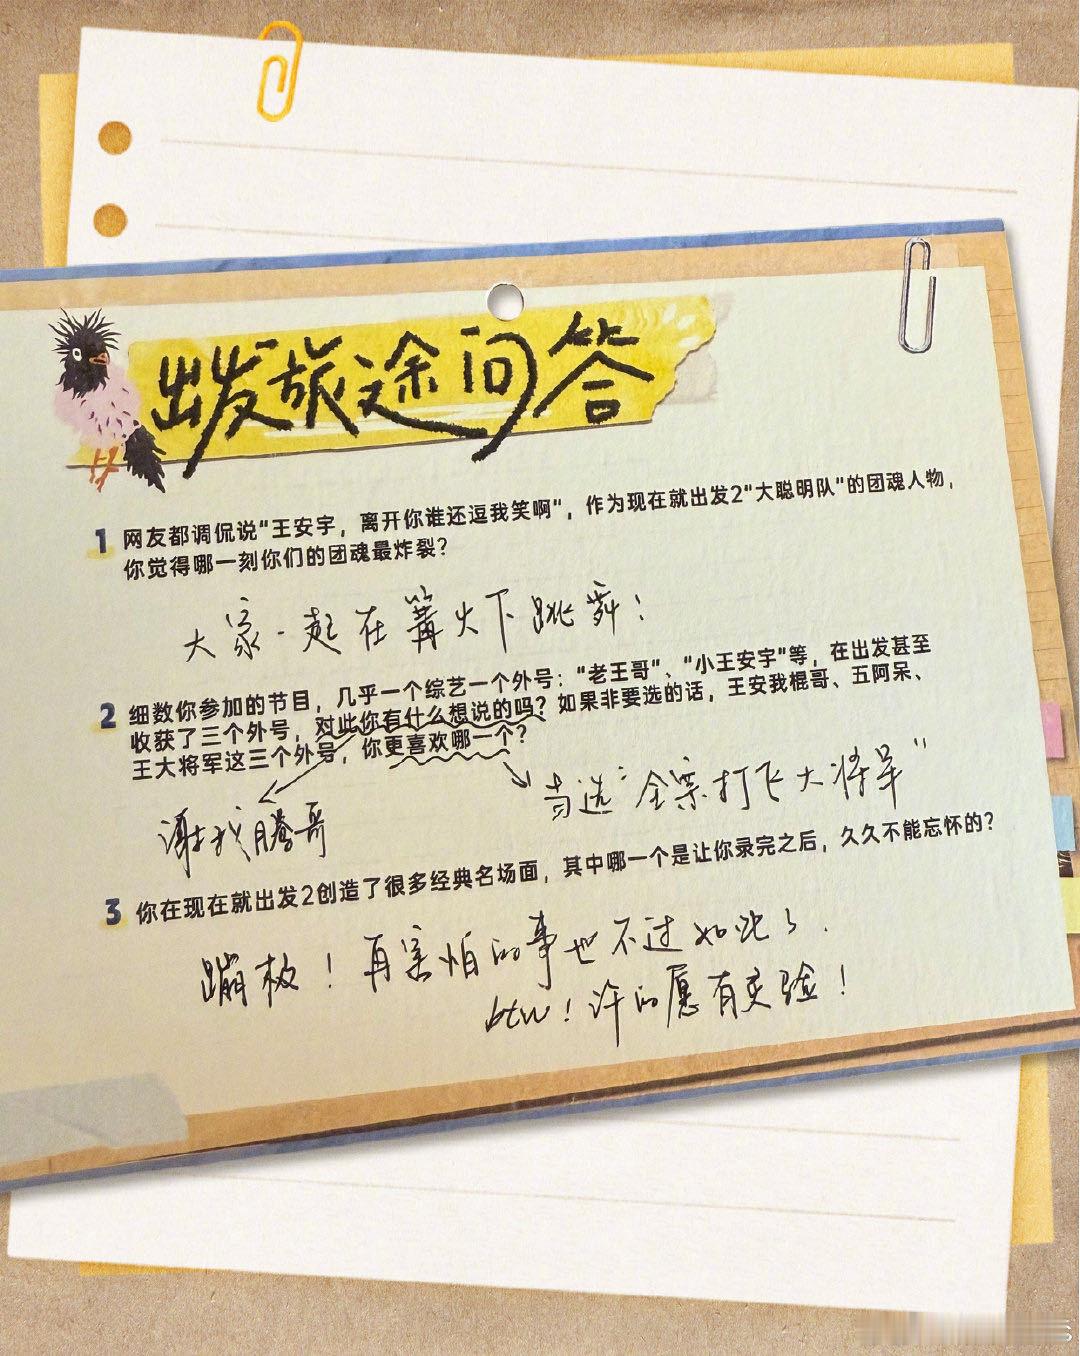 出发旅途问答
1 网友都调侃说“王安宇，离开你谁还逗我笑啊”，作为现在就出发2“大聪明队”的团魂人物，
你觉得哪一刻你们的团魂最炸裂？
大家一起在篝火下跳舞！
2 细数你参加的节目，几乎一个综艺一个外号：“老王哥”、“小王安宇”等，在出发甚至
收获了三个外号，对此你有什么想说的吗？如果非要选的话，王安我棍哥、五阿呆、
王大将军这三个外号，你更喜欢哪一个？
谢我腾哥
当选“全票打飞大将军”
3 你在现在就出发2创造了很多经典名场面，其中哪一个是让你录完之后，久久不能忘怀的？
蹦极！再害怕的事也不过如此了.
btw！许的愿有灵验！